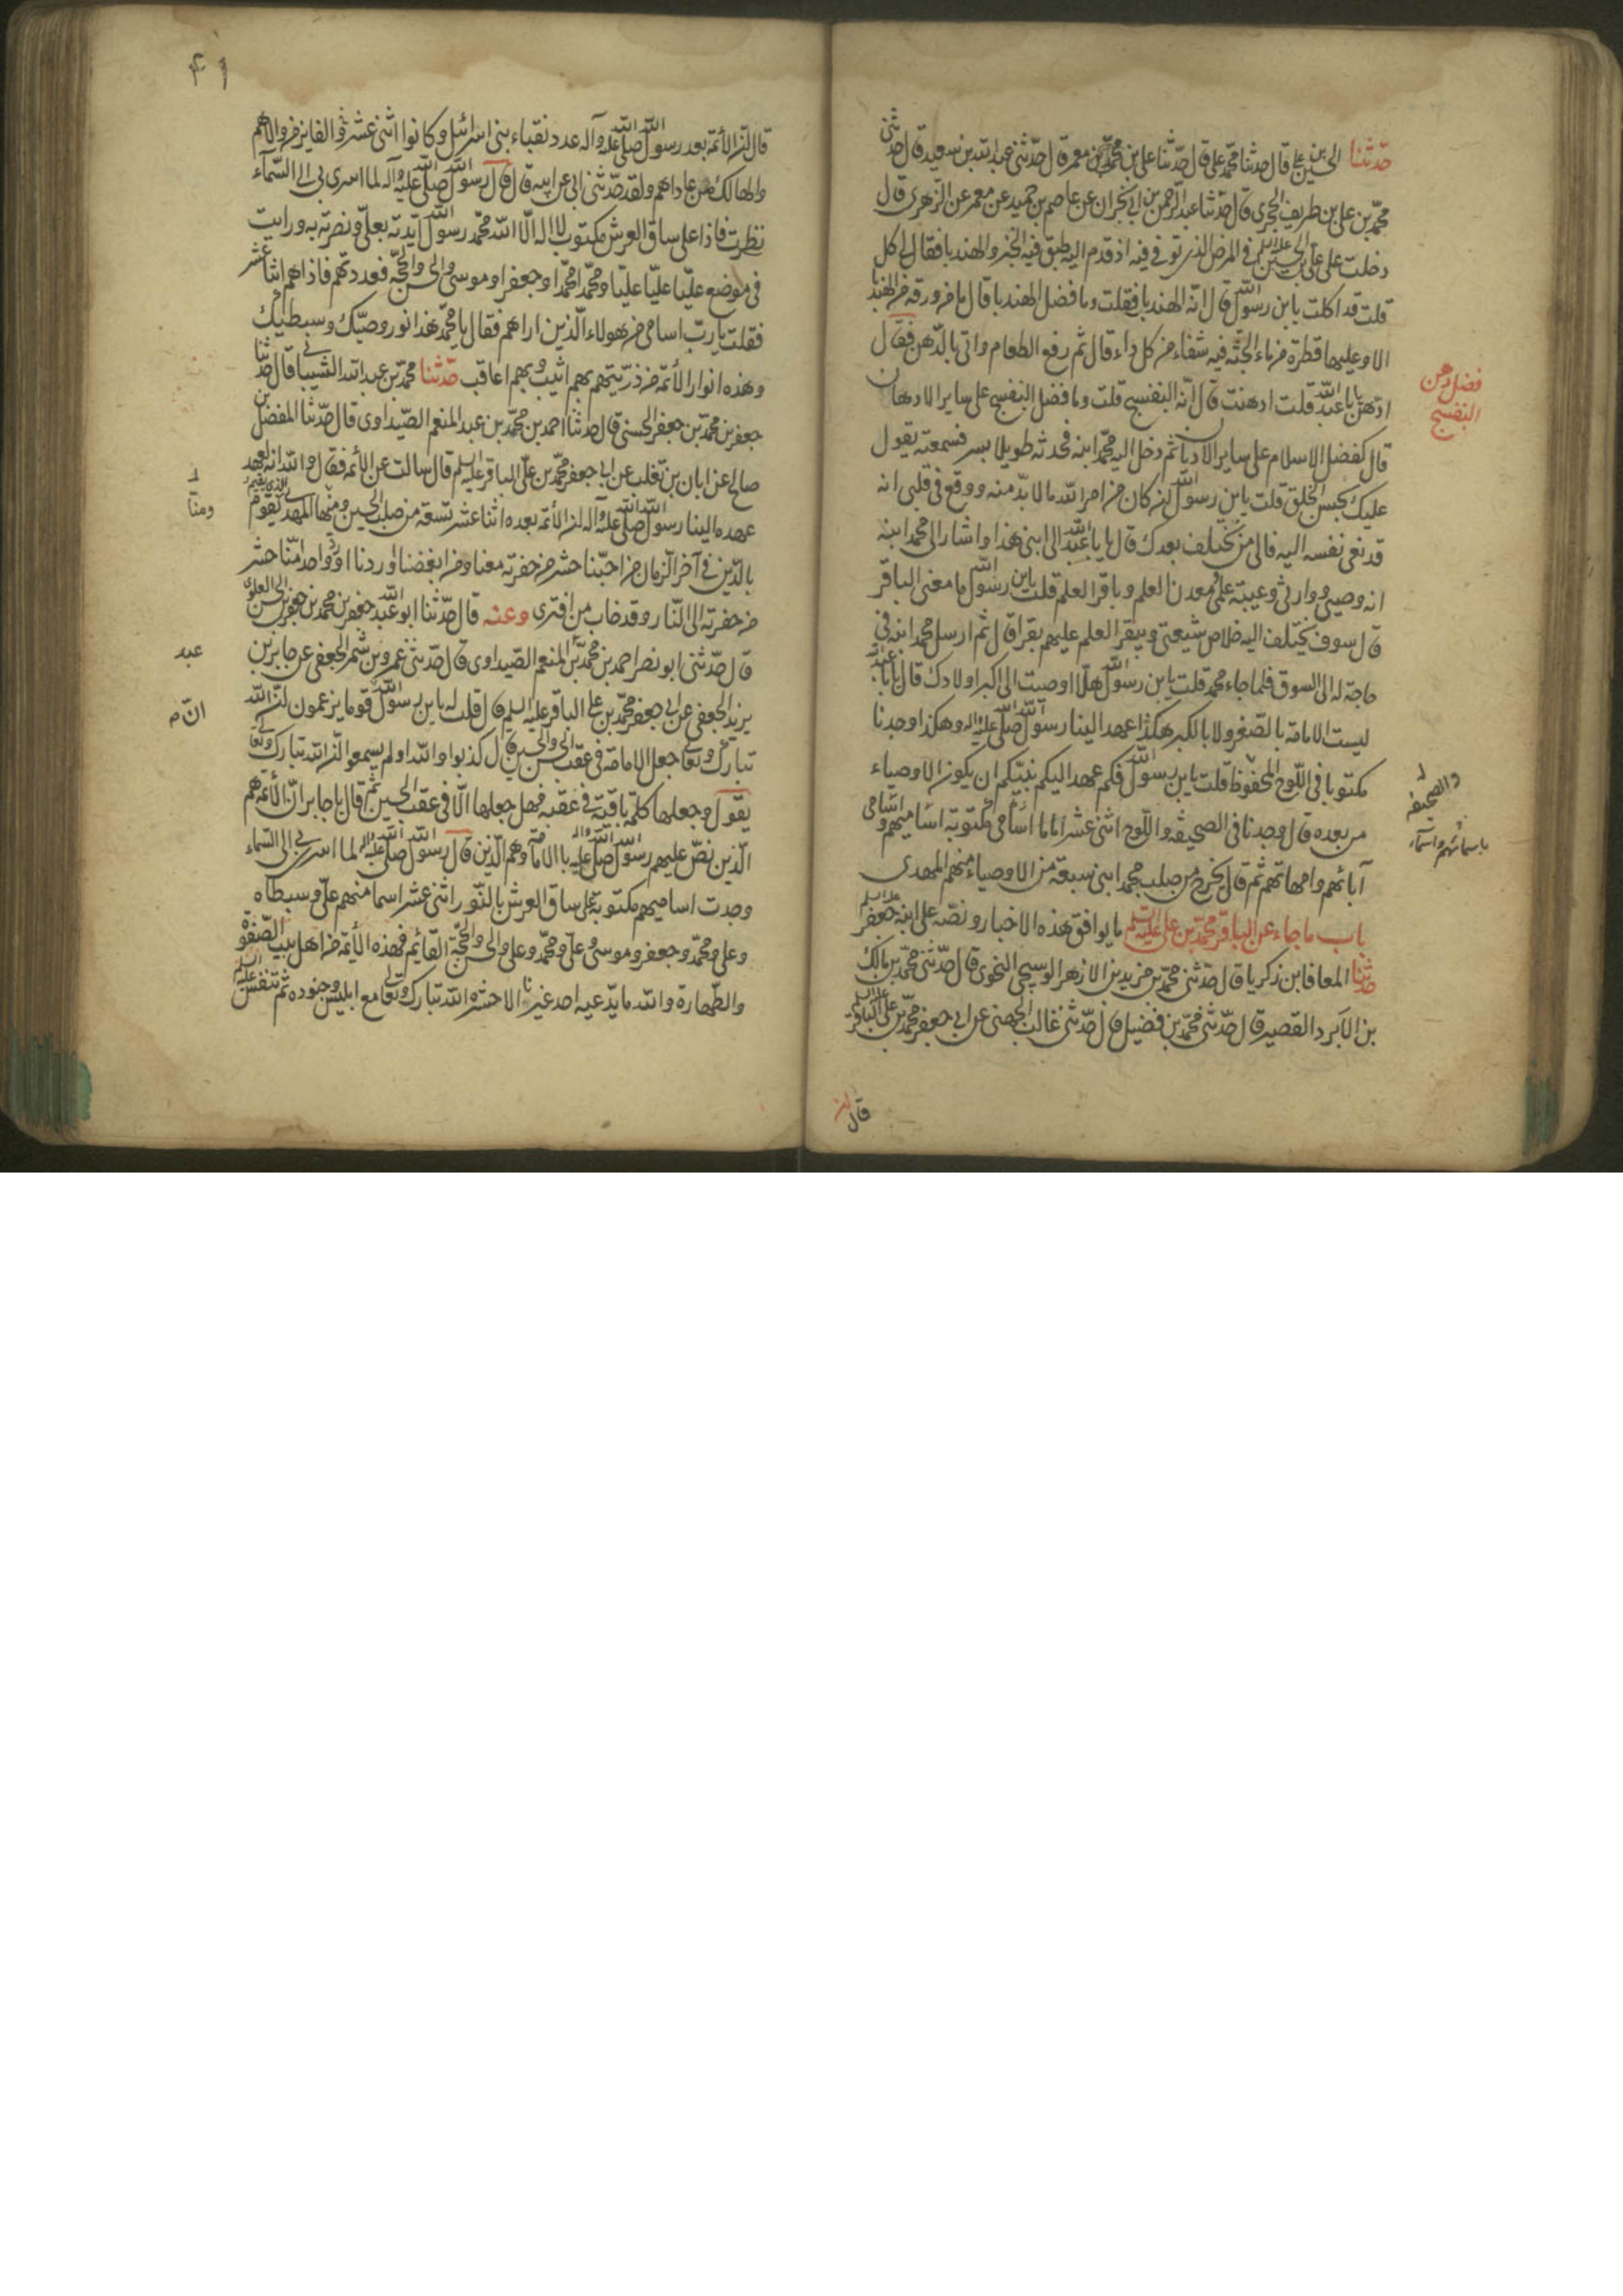 حدثنا الحسين بن علي قال حدثنا محمد علي قال حدثنا علي بن محمد بن معمر قال حدثني عبد الله بن سعيد قال حدثني
محمد بن علي بن طريف الحجري قال حدثنا عبد الرحمن بن ابي نجران عن عاصم بن حميد عن معمر عن الزهري قال
دخلت على علي بن الحسين عليه السلم في المرض الذي توفي فيه اذ قدم اليه طبق فيه الخبز والهندبا فقال لي كل
قلت قد اكلت يا بن رسول الله قال انه الهندبا فقلت وما فضل الهندبا قال ما من ورقة من الهندبا
الا وعليها قطرة من ماء الجنة فيه شفاء من كل داء قال ثم رفع الطعام واتي بالدهن فقال
ادهن يا با عبد الله قلت ادهنت قال انه البنفسج قلت وما فضل البنفسج على ساير الادهان
قال كفضل الاسلام على ساير الاديان ثم دخل اليه محمد ابنه فحدثه طويلا بسر فسمعته يقول
عليك بحسن الخلق قلت يا بن رسول الله ان كان من امر الله ما لا بد منه ووقع في قلبي انه
قد نعى نفسه الى من نختلف بعدك قال يا با عبد الله الى ابني هذا واشار الى محمد ابنه
انه وصيي ووارثي وعيبة علمي معدن العلم وباقر العلم قلت يا بن رسول الله ما معنى الباقر
قال سوف يختلف اليه خلاص شيعتي ويبقر العلم عليهم بقرا قال ثم ارسل محمد ابنه في
حاجة له الى السوق فلما جاء محمد قلت يا بن رسول الله هلا اوصيت الى اكبر اولادك قال يا با عبد الله
ليست الامامة بالصغر ولا بالكبر هكذا عهد الينا رسول الله صلى الله عليه واله وهكذا وجدنا
مكتوبا في اللوح المحفوظ قلت يا بن رسول الله فكم عهد اليكم نبيكم ان يكون الاوصياء
من بعده قال وجدنا في الصحيفة واللوح اثنى عشر اماما اسامي مكتوبة اساميهم واسامي
آبائهم وامهاتهم ثم قال يخرج من صلب محمد ابني سبعة من الاوصياء منهم المهدي
باب ما جاء عن الباقر محمد بن علي عليه السلم ما يوافق هذه الاخبار ونصه على ابنه جعفر عليه السلم
حدثنا المعافا بن زكريا قال حدثني محمد بن مزيد بن الازهر البوسنجي النحوي قال حدثني محمد بن مالك
بن الابرد القصير قال حدثني محمد بن فضيل قال حدثني غالب الجهني عن ابي جعفر محمد بن علي الباقر عليه السلم
قال ان
فضل دهن
البنفسج
والصحيفه
باسمائهم واسماء
٤١
قال ان الأئمة بعد رسول الله صلى الله عليه وآله عدد نقباء بني اسرائيل وكانوا اثنى عشر الفايز من والاهم
والهالك من عاداهم ولقد حدثني ابي عن ابيه قال قال رسول الله صلى الله عليه وآله لما اسري بي الى السماء
نظرت فاذا على ساق العرش مكتوب لا اله الا الله محمد رسول الله ايدته بعلي ونصرته به ورايت
في موضع عليا عليا عليا ومحمدا محمدا وجعفرا وموسى والحسن والحجة فعددتهم فاذا هم اثنا عشر
فقلت يا رب اسامي من هولاء الذين اراهم فقال يا محمد هذا نور وصيك وسبطيك
وهذه انوار الأئمة من ذريتهم بهم اثيب وبهم اعاقب حدثنا محمد بن عبد الله الشيباني قال حدثنا
جعفر بن محمد بن جعفر الحسني قال حدثنا احمد بن محمد بن عبد المنعم الصيداوي قال حدثنا المفضل بن
صالح عن ابان بن تغلب عن ابي جعفر محمد بن علي الباقر عليه السلم قال سالت عن الأئمة فقال والله انه لعهد
عهده الينا رسول الله صلى الله عليه وآله ان الأئمة بعده اثنا عشر تسعة من صلب الحسين ومنها المهدي الذي يقيم
بالدين في آخر الزمان من احبنا حشر من حفرته معنا ومن ابغضنا او ردنا او رد واحد منا حشر
من حفرته الى النار وقد خاب من افترى وعنه قال حدثنا ابو عبد الله جعفر بن محمد بن جعفر بن الحسن العلوي
قال حدثني ابو نصر احمد بن محمد بن المنعم الصيداوي قال حدثني عمرو بن شمر الجعفي عن جابر بن
يزيد الجعفي عن ابي جعفر محمد بن علي الباقر عليه السلم قال قلت له يا بن رسول الله قوما يزعمون ان الله
تبارك وتعالى جعل الامامة في عقب الحسن والحسين قال كذبوا والله اولم يسمعوا ان الله تبارك وتعالى
يقول وجعلها كلمة باقية في عقبه فهل جعلها الا في عقب الحسين ثم قال يا جابر ان الأئمة هم
الذين نص عليهم رسول الله صلى الله عليه واله بالامامة وهم الذين قال رسول الله صلى الله عليه واله لما اسري بي الى السماء
وجدت اساميهم مكتوبة على ساق العرش بالنور اثنى عشر اسما منهم علي وسبطاه
وعلي ومحمد وجعفر وموسى وعلي ومحمد وعلي والحسن والحجة القائم فهذه الأئمة من اهل بيت الصفوة
والطهارة والله ما يدعيه احد غيرنا الا حشره الله تبارك وتعالى مع ابليس وجنوده ثم تنفس عليه السلم
ومنا
عبد
ان م